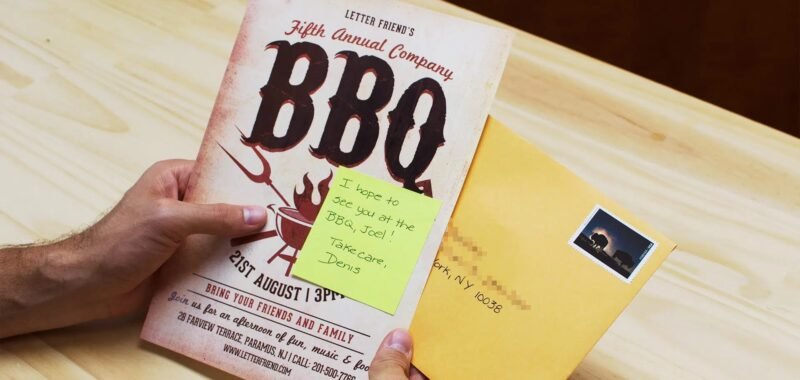 LETTER FRIEND'S
Fifth Annual Company
BBQ
I hope to
see you at the
BBQ, Joel!
Take care,
Denis
21ST AUGUST | 3PM
BRING YOUR FRIENDS AND FAMILY
Join us for an afternoon of fun, music & foo
28 FARVIEW TERRACE, PARAMUS, NJ | CALL: 201-500-7760
WWW.LETTERFRIEND.COM
York, NY 10038